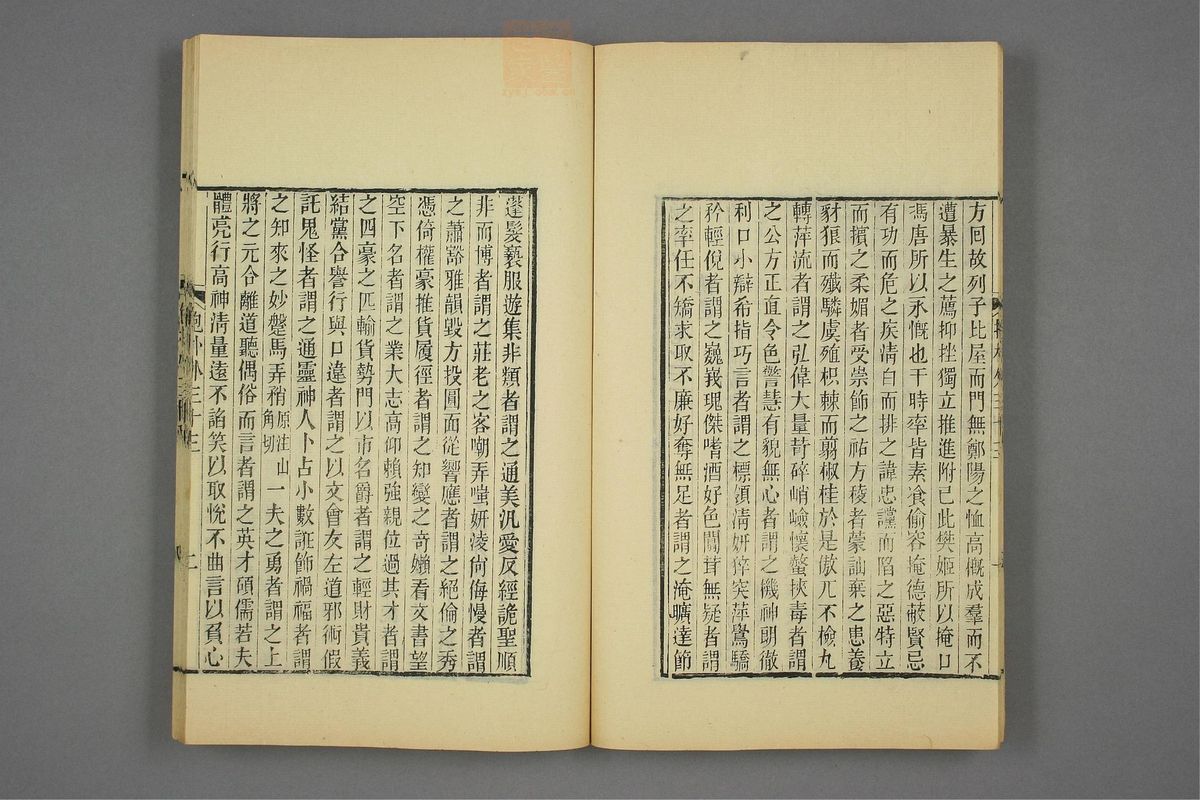 方回故列子比屋而門無鄭陽之恤高概成羣而不
遭暴生之薦抑挫獨立推進附己此樊姬所以掩口
馮唐所以永慨也干時率皆素飡偷容掩德蔽賢忌
有功而危之疾清白而排之諱忠讜而陷之惡特立
而擯之柔媚者受崇飾之祐方稜者蒙訕棄之患養
豺狼而殲驎虞殖枳棘而翦椒桂於是傲兀不檢丸
轉萍流者謂之弘偉大量苛碎峭嶮懷螫挾毒者謂
之公方正直令色警慧有貌無心者謂之機神朗徹
利口小辯希指巧言者謂之標領清妍猝突萍鸎驕
矜輕倪者謂之巍峩瑰傑嗜酒好色闒茸無疑者謂
之率任不矯求取不廉好奪無足者謂之淹曠遠節
蓬髮褻服遊集非類者謂之通美汎愛反經詭聖順
非而博者謂之莊老之客嘲弄嗤妍凌尙侮慢者謂
之蕭豁雅韻毀方投圓面從響應者謂之絕倫之秀
憑倚權豪推貨履徑者謂之知變之奇嬾看文書望
空下名者謂之業大志高仰賴強親位過其才者謂
之四豪之匹輸貨勢門以市名爵者謂之輕財貴義
結黨合譽行與口違者謂之以文會友左道邪術假
託鬼怪者謂之通靈神人卜占小數誑飾禍福者謂
之知來之妙躄馬弄矟原注山角切一夫之勇者謂之上
將之元合離道聽偶俗而言者謂之英才碩儒若夫
體亮行高神清量遠不諂笑以取悅不曲言以負心
抱朴外三十三
二